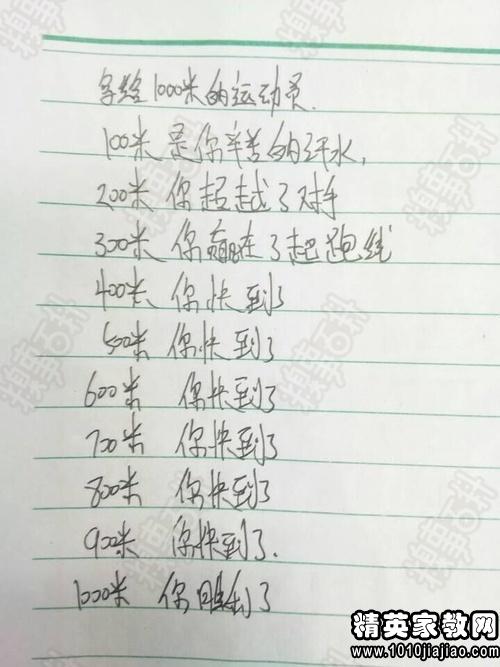 写给1000米的运动员.
100米是你辛苦的汗水,
200米 你超越了对手
300米 你赢在了起跑线
400米 你快到了
500米 你快到了
600米 你快到了
700米 你快到了
800米 你快到了
900米 你快到了.
1000米 你到了
糗事百科
精英家教网
www.1010jiajiao.com